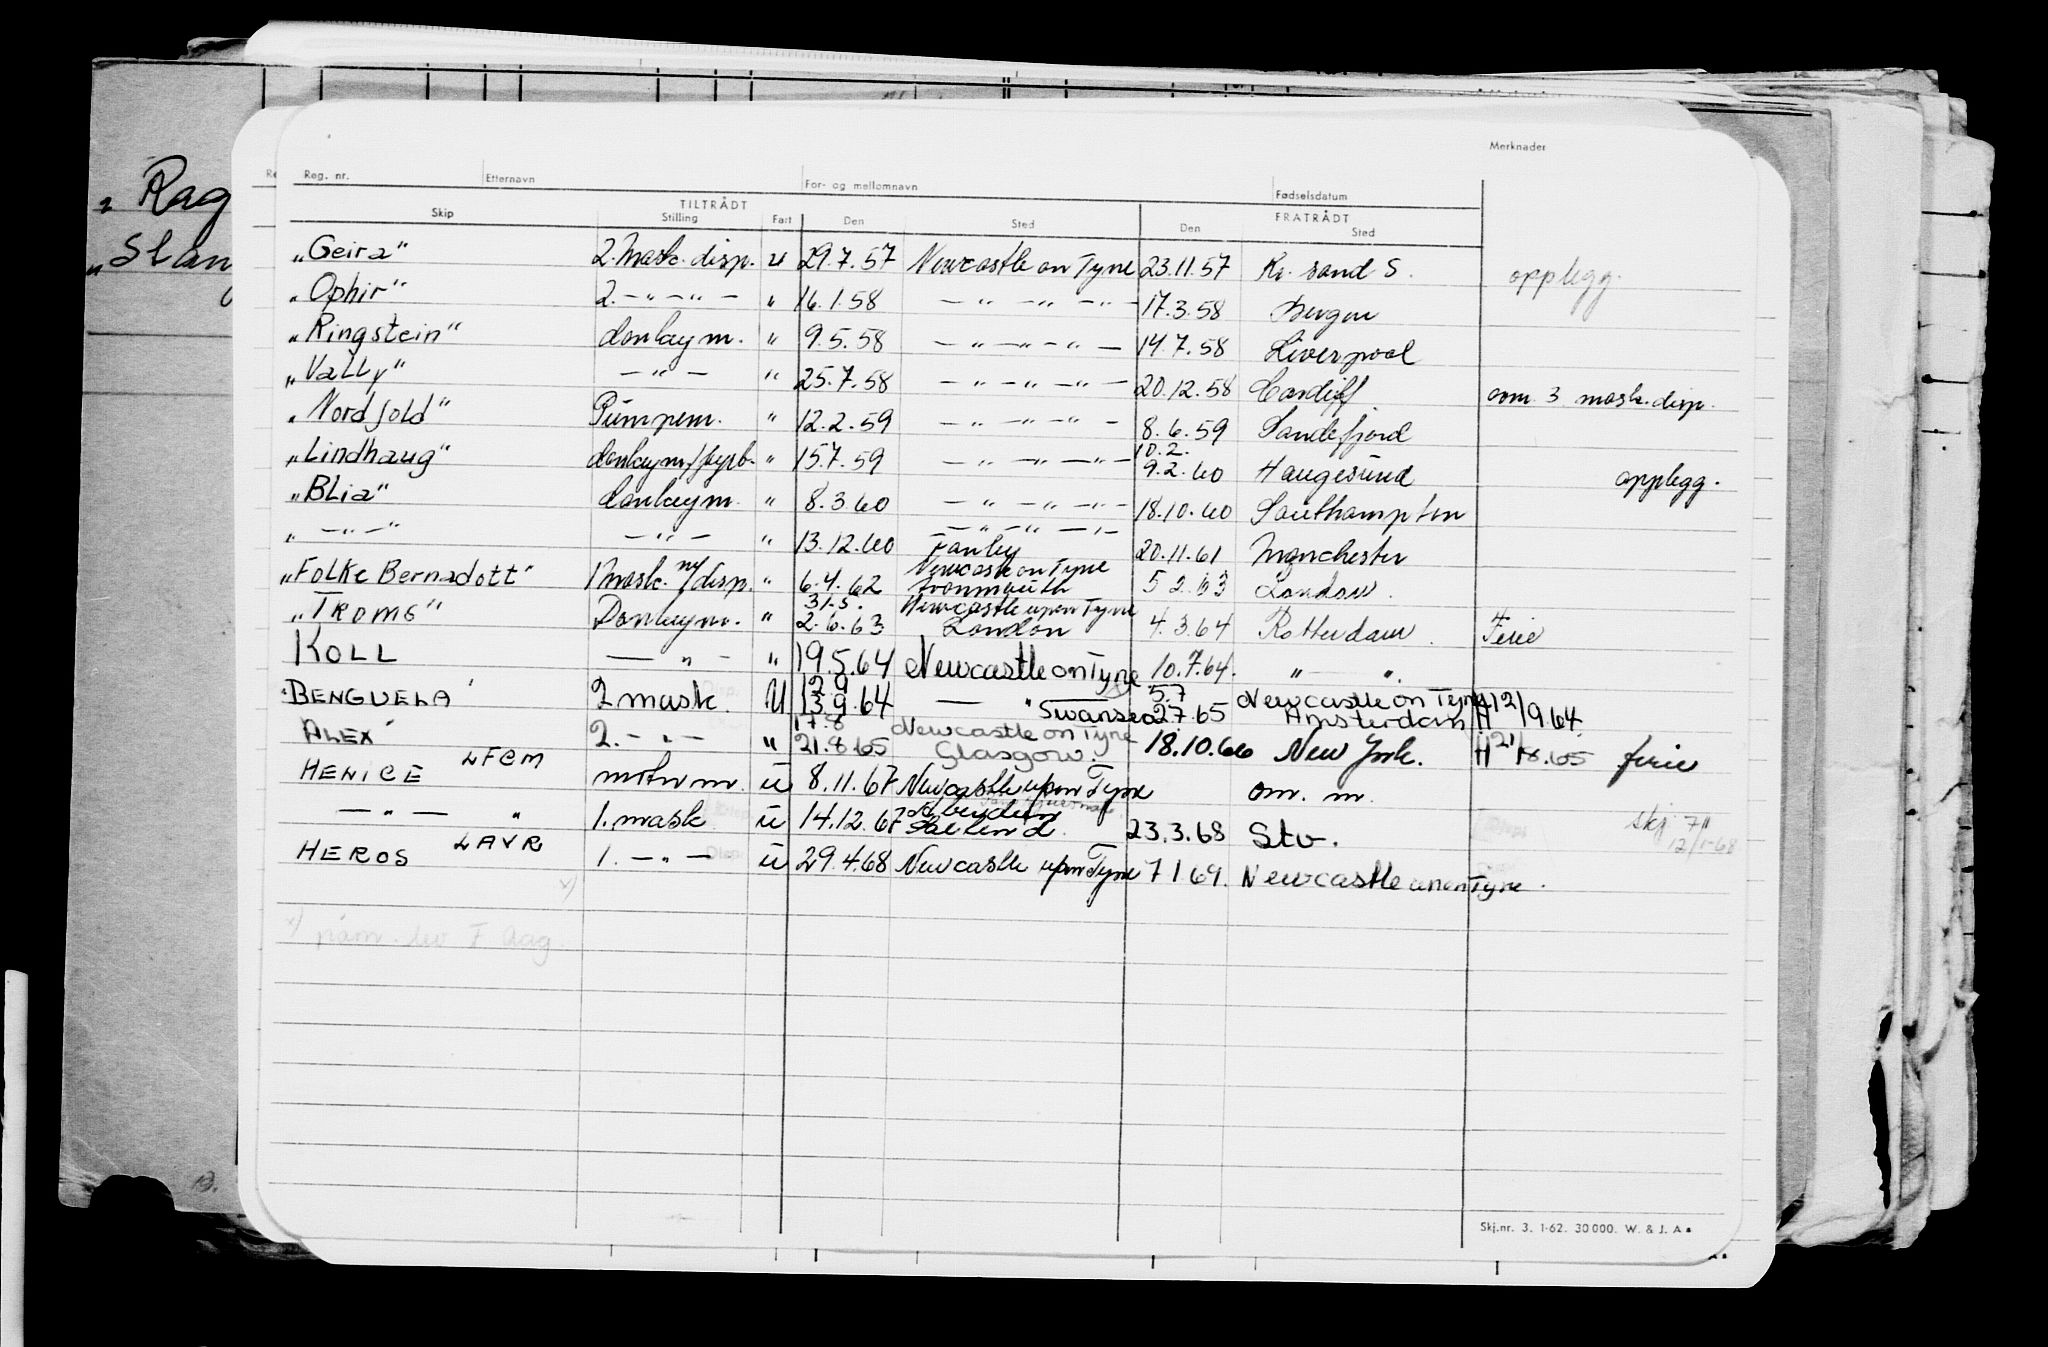 Merknader
Reg. nr. Etternavn For- og mellomnavn Fødselsdatum
TILTRÅDT FRATRÅDT
Skip Stilling Fart Den Sted Den Sted
„Geira" 2. Mask. disp. u 29.7.57 Newcastle on Tyne 23.11.57 Kr. sand S. opplegg.
„Ophir" 2. -„-„- „ 16.1.58 -„-„-„- 17.3.58 Bergen
„Ringstein" donkeym. „ 9.5.58 -„-„-„- 14.7.58 Liverpool
„Vally" -„- „ 25.7.58 -„-„-„- 20.12.58 Cardiff om 3 mask. disp.
„Nordfold" Pumpem. „ 12.2.59 -„-„-„- 8.6.59 Sandefjord
10.2.
„Lindhaug" donkeym/fyrb. „ 15.7.59 -„-„-„- 9.2.60 Haugesund opplegg.
„Blia" donkeym. „ 8.3.60 -„-„-„- 18.10.60 Southampton
-„-„-„-
„-„-" -„- „ 13.12.60 20.11.61 Manchester
Newcastle on Tyne
„Folke Bernadott" mask. m/disp. „ 6.4.62 5 2.63 London.
31.5. Newcastle upon Tyne
„Troms" Donkeym. „ 2.6.63 London 4.3.64 Rotterdam. Ferie
KOLL -„- „ 19.5.64 Newcastle on Tyne 10.7.64. „ - „.
12.9 5.7 Newcastle on Tyne
"BENGUELA" 2 mask. U 13.9.64 - " Swansea 2.7.65 Amsterdam H 12/9 64
17.8 Newcastle on Tyne
ALEX 2. -„- „ 21.8.65 Glasgow. 18.10.66 New York. H 21/8.65 ferie
LFCM
HENICE motorm. u 8.11.67 Newcastle upon Tyne om. m.
-„- „ 1. mask u 14.12.67 23.3.68 Stv. skj 7
12/1-68
LAVR
HEROS 1. -„- u 29.4.68 Newcastle upon Tyne 7 1 69. Newcastle upon Tyne.
x)
x)
„Rag
„Slan
Skj.nr. 3. 1-62. 30 000. W. & J. A.